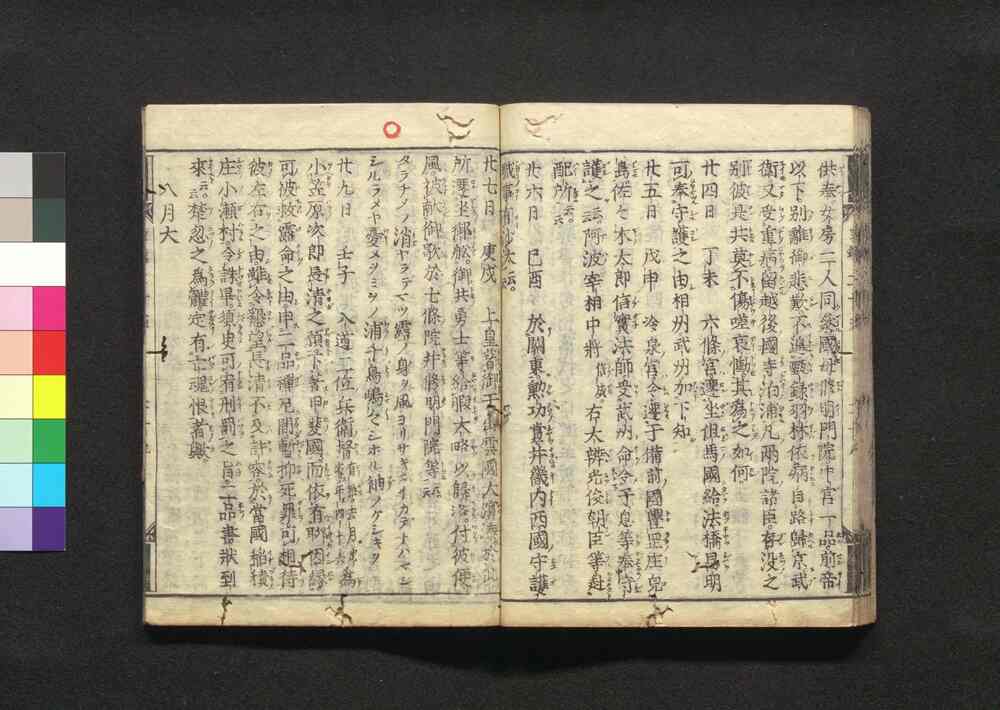 供奉女房二人同參國母修明門院中宮一品前帝
以下別離御悲歎不遑甄錄羽林依病自路歸京武
衛又受重病留越後國寺泊浦凡兩院諸臣存没之
別彼是共莫不傷嗟哀慟甚為之如何
廿四日　丁未　六條宮遷坐但馬國給法橋昌明
可奉守護之由相州武州加下知
廿五日　戊申　冷泉宮令遷于備前國豐岡庄兒
嶋佐々木太郎信實法師受武州命令子息等奉守
護之云云阿波宰相中將信成右大辨光俊朝臣等赴
配所云云
廿六日　己酉　於關東勲功賞并畿内西國守護
職事有沙汰云云
廿七日　庚戌　上皇著御于出雲國大濱湊於此
所遷坐御舩御共勇士等給暇大略以歸洛付彼便
風被獻御歌於七條院并修明門院等云云
タラチメノ消ヤラテマツ露ノ身ヲ風ヨリサキニイカテトハマシ
シルラメヤ憂メヲミヲノ浦千鳥嶋々シホル袖ノケシキヲ
廿九日　壬子　入道二位兵衛督有雅去月出家年四十六為
小笠原次郎長清之預下著甲斐國而依有聊因緣
可被救露命之由申二品禪尼間暫抑死罪可相待
彼左右之由雖令懇望長清不及許容於當國稻積
庄小瀬村令誅畢須臾可有刑罰之旨二品書狀到
來云云楚忽之為躰定有亡魂恨者歟
八月大